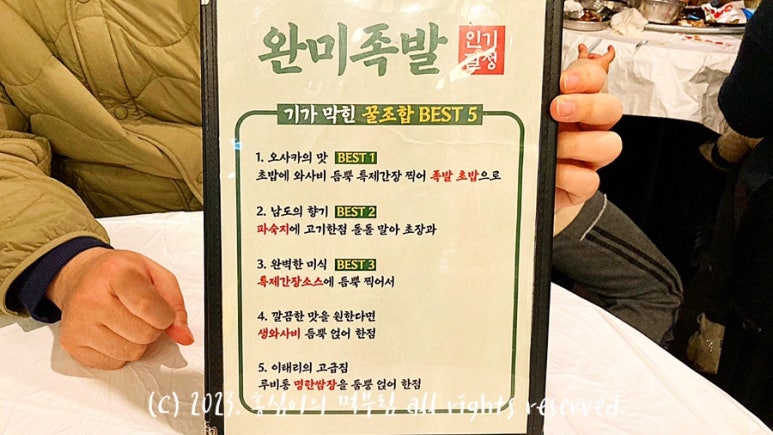 완미족발
인기
결정
기가 막힌 꿀조합 BEST 5
1. 오사카의 맛 BEST 1
초밥에 와사비 듬뿍 특제간장 찍어 족발 초밥으로
2. 남도의 향기 BEST 2
파숙지에 고기한점 돌돌 말아 초장과
3. 완벽한 미식 BEST 3
특제간장소스에 듬뿍 찍어서
4. 깔끔한 맛을 원한다면
생와사비 듬뿍 얹어 한점
5. 이태리의 고급짐
루비통 명란쌈장을 듬뿍 얹어 한점
(C) 2023. 홍심이의 먹부림 all rights reserved.